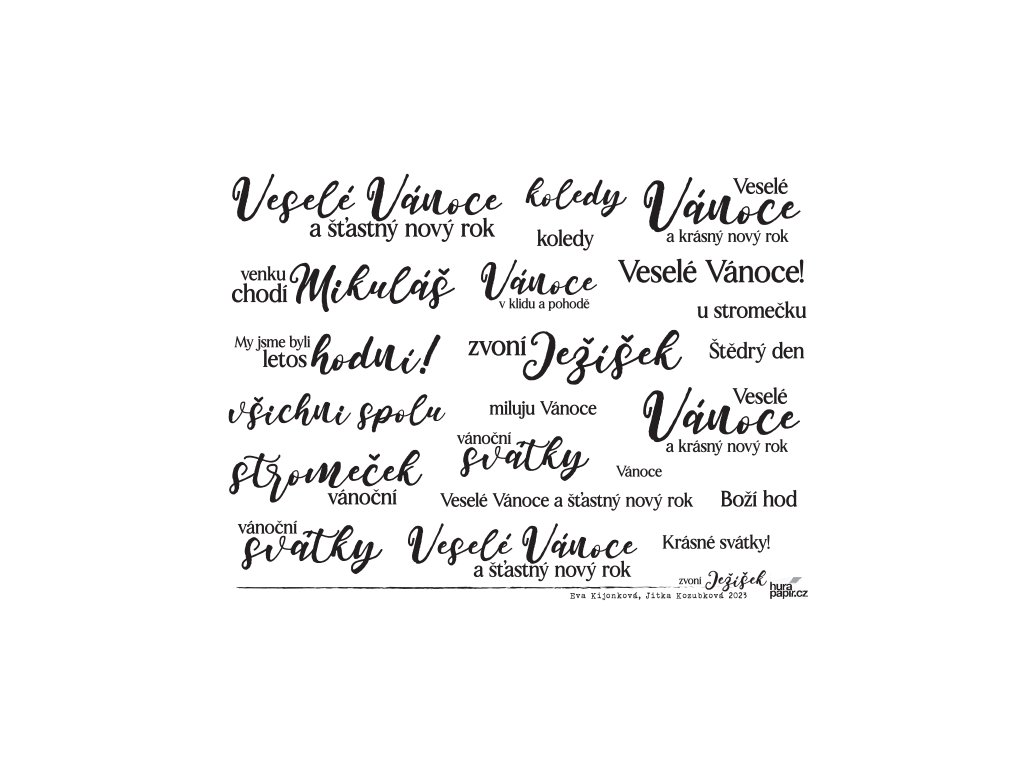 Veselé Vánoce
a šťastný nový rok
koledy
koledy
Veselé
Vánoce
a krásný nový rok
venku
chodí Mikuláš
Vánoce
v klidu a pohodě
Veselé Vánoce!
u stromečku
My jsme byli
letos hodní!
zvoní Ježíšek
Štědrý den
všichni spolu
miluju Vánoce
Veselé
Vánoce
a krásný nový rok
vánoční
svátky
Vánoce
stromeček
vánoční
Veselé Vánoce a šťastný nový rok
Boží hod
vánoční
svátky
Veselé Vánoce
a šťastný nový rok
Krásné svátky!
zvoní Ježíšek
hura
papir.cz
Eva Kijonková, Jitka Kozubková 2023